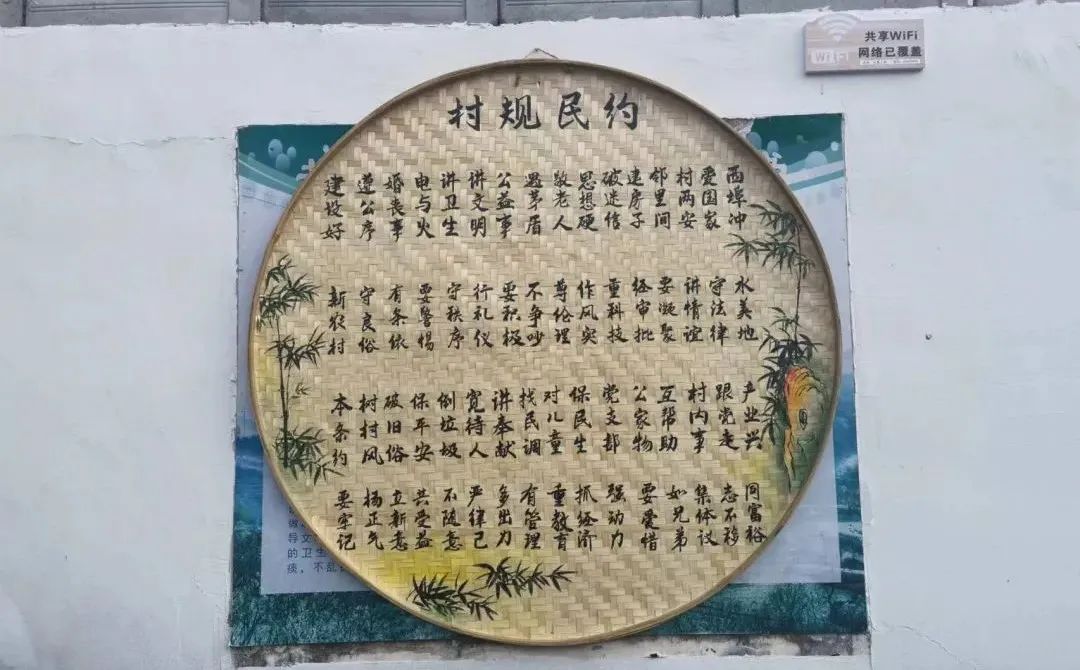 村规民约
西埠冲 水美地 产业兴 同富裕
爱国家 守法律 跟党走 志不移
村两安 讲情谊 村内事 集体议
邻里间 要凝聚 互帮助 如兄弟
建房子 经审批 公家物 要爱惜
破迷信 重科技 党支部 强动力
思想硬 作风实 保民生 抓经济
敬老人 尊伦理 对儿童 重教育
遇茅盾 不争吵 找民调 有管理
公益事 要积极 讲奉献 多出力
讲文明 行礼仪 宽待人 严律己
讲卫生 守秩序 倒垃圾 不随意
电与火 要警惕 保平安 共受益
婚丧事 有条依 破旧俗 立新意
遵公序 守良俗 树村风 扬正气
建设好 新农村 本条约 要牢记
共享WiFi
网络已覆盖
WiFi
导文
的卫生
痰，不乱